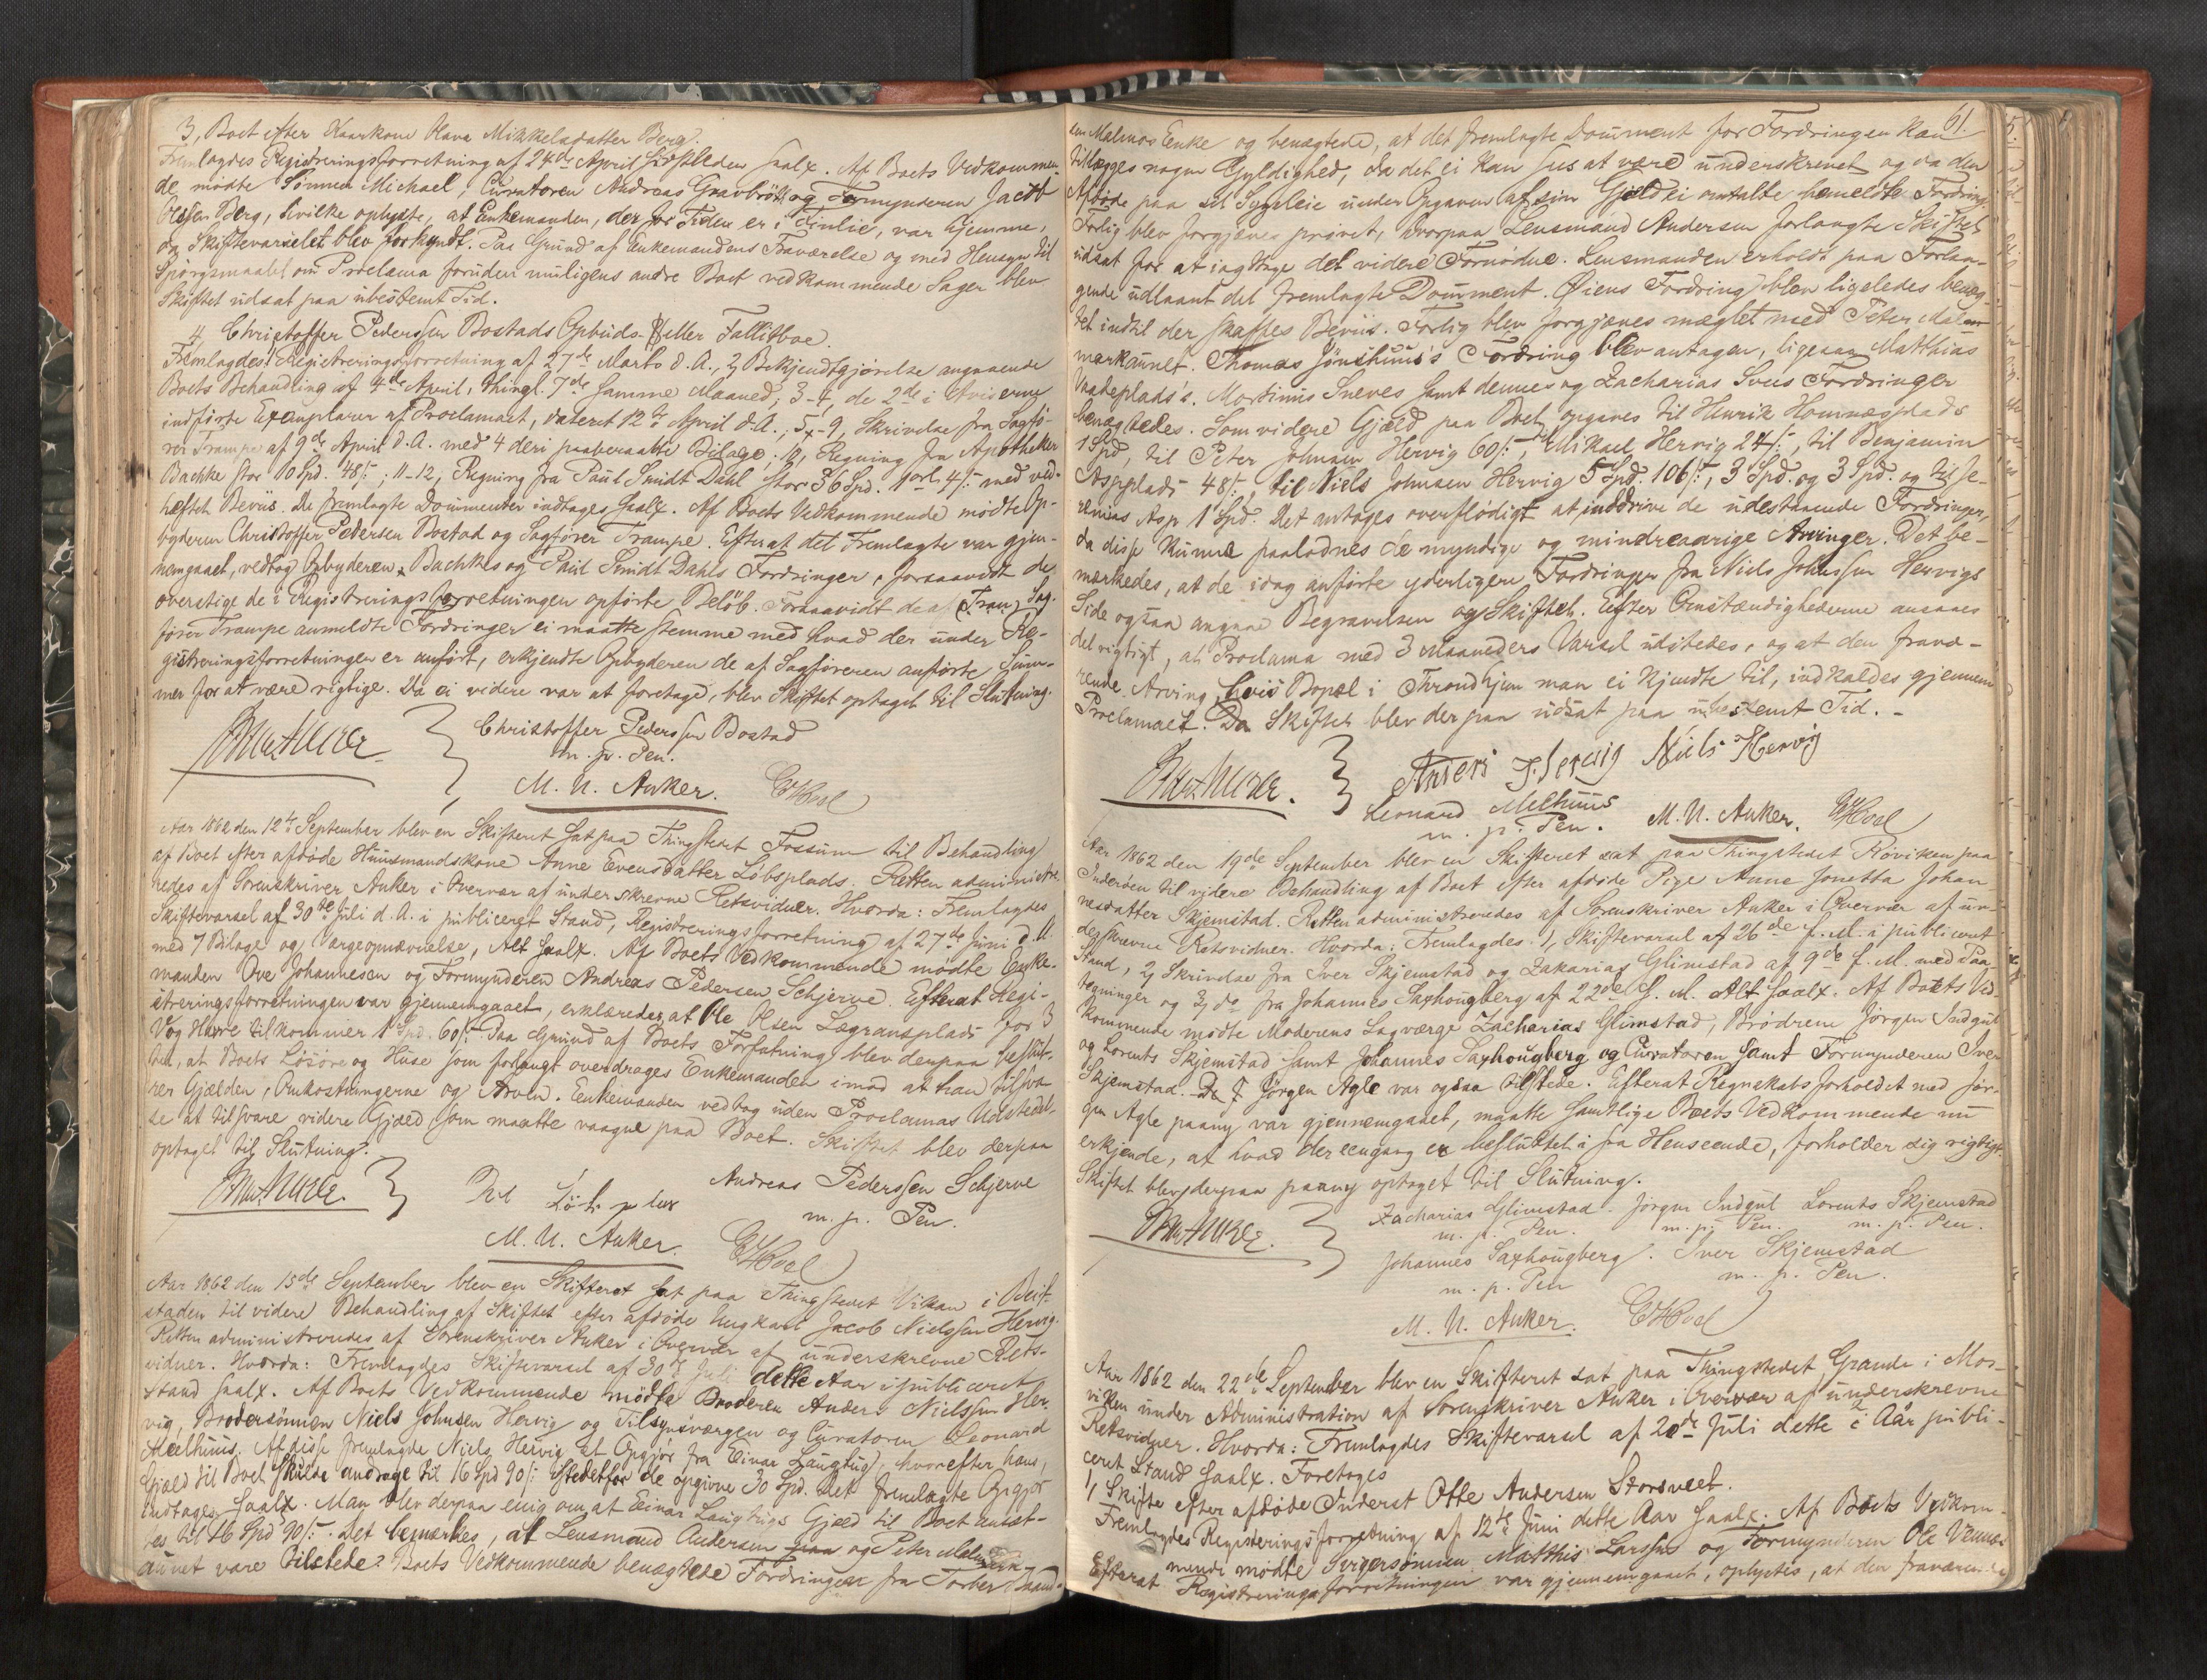 3, Boet efter Kaarkone Olava Mikkelsdatter Berg.
Fremlagdes Registreringsforretning af 24de April saalx. Af Boets Vedkommen-
de mødte Sønnen Michael, Curatoren Andreas Gravbrøt og Formynderen Jacob
Olssen Berg, hvilke oplyste, at Enkemanden, der for Tiden er i Finlie, var hjemme,
og Skiftevarselet blev forkyndt. Paa Grund af Enkemandens Fraværelse og med Hensyn til
Spørgsmaalet om Proclama foruden muligens andre Boet vedkommende Sager blev
Skiftet udsat paa ubestemt Tid.
4, Christoffer Pederssen Bostads Opbuds- eller Fallitboe.
Fremlagdes 1, Registreringsforretning af 27de Marts d. A., 2, Bekjendtgjørelse angaaende
Boets Behandling af 4de April, thingl. 7de samme Maaned; 3-4, de 2de i Aviserne
indførte Exemplarer af Proclamaet, dateret 12te April d. A.; 5-9, Skrivelse fra Sagfø-
rer Trampe af 9de April d. A. med 4 deri paaberaabte Bilage; 10, Regning fra Apotheker
Bachke stor 10 Spd. 48 s; 11-12, Regning fra Paul Smidt Dahl stor 36 Spd. 1 ort. 4 s med ved-
heftet Beviis. De fremlagte Documenter indtages saalx. Af Boets Vedkommende mødte Op-
byderen Christoffer Pedersen Bostad og Sagfører Trampe. Efterat det Fremlagte var gjen-
nemgaaet, vedtog Opbyderen Bachkes og Paul Smidt Dahls Fordringer, foraavidt de
overstige de i Registreringsforretningen opførte Beløb. Foraavidt de af Sag-
fører Trampe anmeldte Fordringer ei maatte stemme med hvad der under Re-
gistreringsforretningen er anført, erkjendte Opbyderen de af Sagføreren anførte Sum-
mer for at være rigtige. Da ei videre var at foretage, blev Skiftet optaget til Slutning.
Christoffer Pederssen Bostad
m. p. Pen.
M. N. Anker. EHoel
Aar 1862 den 12te September blev en Skifteret sat paa Thingstedet Fossum til Behandling
af Boet efter afdøde Huusmandskone Anne Evensdatter Løbsplads. Retten administre-
redes af Sorenskriver Anker i Overvær af underskrevne Retsvidner. Hvorda: Fremlagdes
Skiftevarsel af 30te Juli d. A. i publiceret Stand, Registreringsforretning af 27de Juni d. A.
med 7 Bilage og Værgeopnævnelse, Alt saalx. Af Boets Vedkommende mødte Enke-
manden Ove Johannesen og Formynderen Andreas Pedersen Schjerve. Efterat Regi-
streringsforretningen var gjennemgaaet, erklæredes, at Ole Olsen Lægransplads for 3
Vog Havre tilkommer 1 Spd. 60 s. Paa Grund af Boets Forfatning blev derpaa beslut-
tet, at Boets Løsøre og Huse som forlangt overdrages Enkemanden imod at han tilsva-
rer Gjælden, Omkostningerne og Arven. Enkemanden vedtog uden Proclamas Udstedel-
se at tilsvare videre Gjæld, som maatte vaagne paa Boet. Skiftet blev derpaa
optaget til Slutning.
Andreas Pederssen Schjerve
m. p. Pen.
M. N. Anker. EHoel
Aar 1862 den 15de September blev en Skifteret sat paa Thingstedet Vikan i Beit-
staden til videre Behandling af Skiftet efter afdøde Ungkarl Jacob Nielssen Hervig.
Retten administreredes af Sorenskriver Anker i Overvær af underskrevne Rets-
vidner. Hvorda: Fremlagdes Skiftevarsel af 30te Juli dette Aar i publiceret
Stand saalx. Af Boets Vedkommende mødte Broderen Anders Nielssen Her-
vig, Brodersønnen Niels Johnsen Hervig og Tilsynsværgen og Curatoren Leonard
Melhuus. Af disse fremlagde Niels Hervig et Opgjør fra Einar Langhug, hvorefter hans
Gjæld til Boet skulde andrage til 16 Spd 90 s istedetfor de opgivne 30 Spd. Det fremlagte Opgjør
indtages saalx. Man blev derpaa enig om, at Einar Langhugs Gjæld til Boet ansæt-
tes til 16 Spd 90 s. Det bemærkes, at Lensmand Andersen og Peter Malm
aunet vare tilstede. Boets Vedkommende benægtede Fordringen fra Torber
61.
Malmos Enke og benægtede, at det fremlagte Document for Fordringen kan
tillægges nogen Gyldighed, da det ei kan sees at være underskrevet og da den
Afdøde paa sit Sygeleie under Opgaven af sin Gjæld ei omtalte bemeldte Fordring.
Forlig blev forgjæves prøvet, hvorpaa Lensmand Andersen forlangte Skiftet
udsat for at iagttage det videre Fornødne. Lensmanden erholdt paa Forlan-
gende udlaant det fremlagte Document. Øiens Fordring blev ligeledes benæg-
tet indtil der skaffes Beviis. Forlig blev forgjæves mæglet med Peter Malm
markaunet. Thomas Jønshuus's Fordring blev antagen, ligesaa Matthias
Vaadeplads's. Mortinus Sneves samt dennes og Zacharias Svees Fordringer
benægtedes. Som videre Gjæld paa Boet opgaves til Henrik Homnæsplads
1 Spd, til Peter Johnsen Hervig 60 s, Mikael Hervig 24 s, til Benjamin
Aspplads 48 s, til Niels Johnsen Hervig 5 Spd. 106 s, 3 Spd. og 3 Spd. og til Je-
remias Asp 1 Spd. Det antages overflødigt at inddrive de udestaaende Fordringer,
da disse kunne paalodnes de myndige og mindreaarige Arvinger. Det be-
mærkedes, at de idag anførte yderligere Fordringer fra Niels Johnssen Hervigs
Side ogsaa angaae Begravelsen og Skiftet. Efter Omstændighederne ansaaes
det vigtigt, at Proclama med 3 Maaneders Varsel udstedes, og at den fravæ-
rende Arving, hvis Bopæl i Throndhjem man ei kjendte til, indkaldes gjennem
Proclamaet. Da Skiftet blev derpaa udsat paa ubestemt Tid. -
Anders Hervig Niels Hervig
Leonard Melhuus
m. p. Pen. M. N. Anker. EHoel
Aar 1862 den 19de September blev en Skifteret sat paa Thingstedet Røviken paa
Inderøen til videre Behandling af Boet efter afdøde Pige Anne Jonetta Johan
nesdatter Skjemstad. Retten administreredes af Sorenskriver Anker i Overvær af un-
derskrevne Retsvidner. Hvorda: Fremlagdes 1, Skiftevarsel af 26de f. M. i publiceret
Stand, 2, Skrivelse fra Iver Skjemstad og Zakarias Glimstad af 9de f. M. med Paa-
tegninger og 3, do fra Johannes Saxhougberg af 22de f. M. Alt saalx. Af Boets Ved-
kommende mødte Moderens Lagværge Zacharias Glimstad, Brødrene Jørgen Indgul
og Lorents Skjemstad samt Johannes Saxhougberg og Curatoren samt Formynderen Iver
Skjemstad. Jørgen Agle var ogsaa tilstede. Efterat Regnskabsforholdet med Jør-
gen Agle paany var gjennemgaaet, maatte samtlige Boets Vedkommende nu
erkjende, at hvad der eengang er besluttet i saa Henseende, forholder sig rigtigt.
Skiftet blev derpaa paany optaget til Slutning.
Zacharias Glimstad. Jørgen Indgul Lorents Skjemstad
m. p. Pen. m. p. Pen. m. p. Pen.
Johannes Saxhougberg. Iver Skjemstad
m. p. Pen m. p. Pen.
M. N. Anker. EHoel
Aar 1862 den 22de September blev en Skifteret sat paa Thingstedet Grande i Mos-
viken under Administration af Sorenskriver Anker i Overvær af underskrevne
Retsvidner. Hvorda: Fremlagdes Skiftevarsel af 20de Juli dette Aar i publi-
ceret Stand saalx. Foretages
1, Skifte efter afdøde Inderst Otte Andersen Storsveet.
Fremlagdes Registreringsforretning af 12te Juni dette Aar saalx. Af Boets Vedkom-
mende mødte Svigersønnen Matthis Larssen og Formynderen Ole Vennæs
Efterat Registreringsforretningen var gjennemgaaet, oplystes, at den fraværende